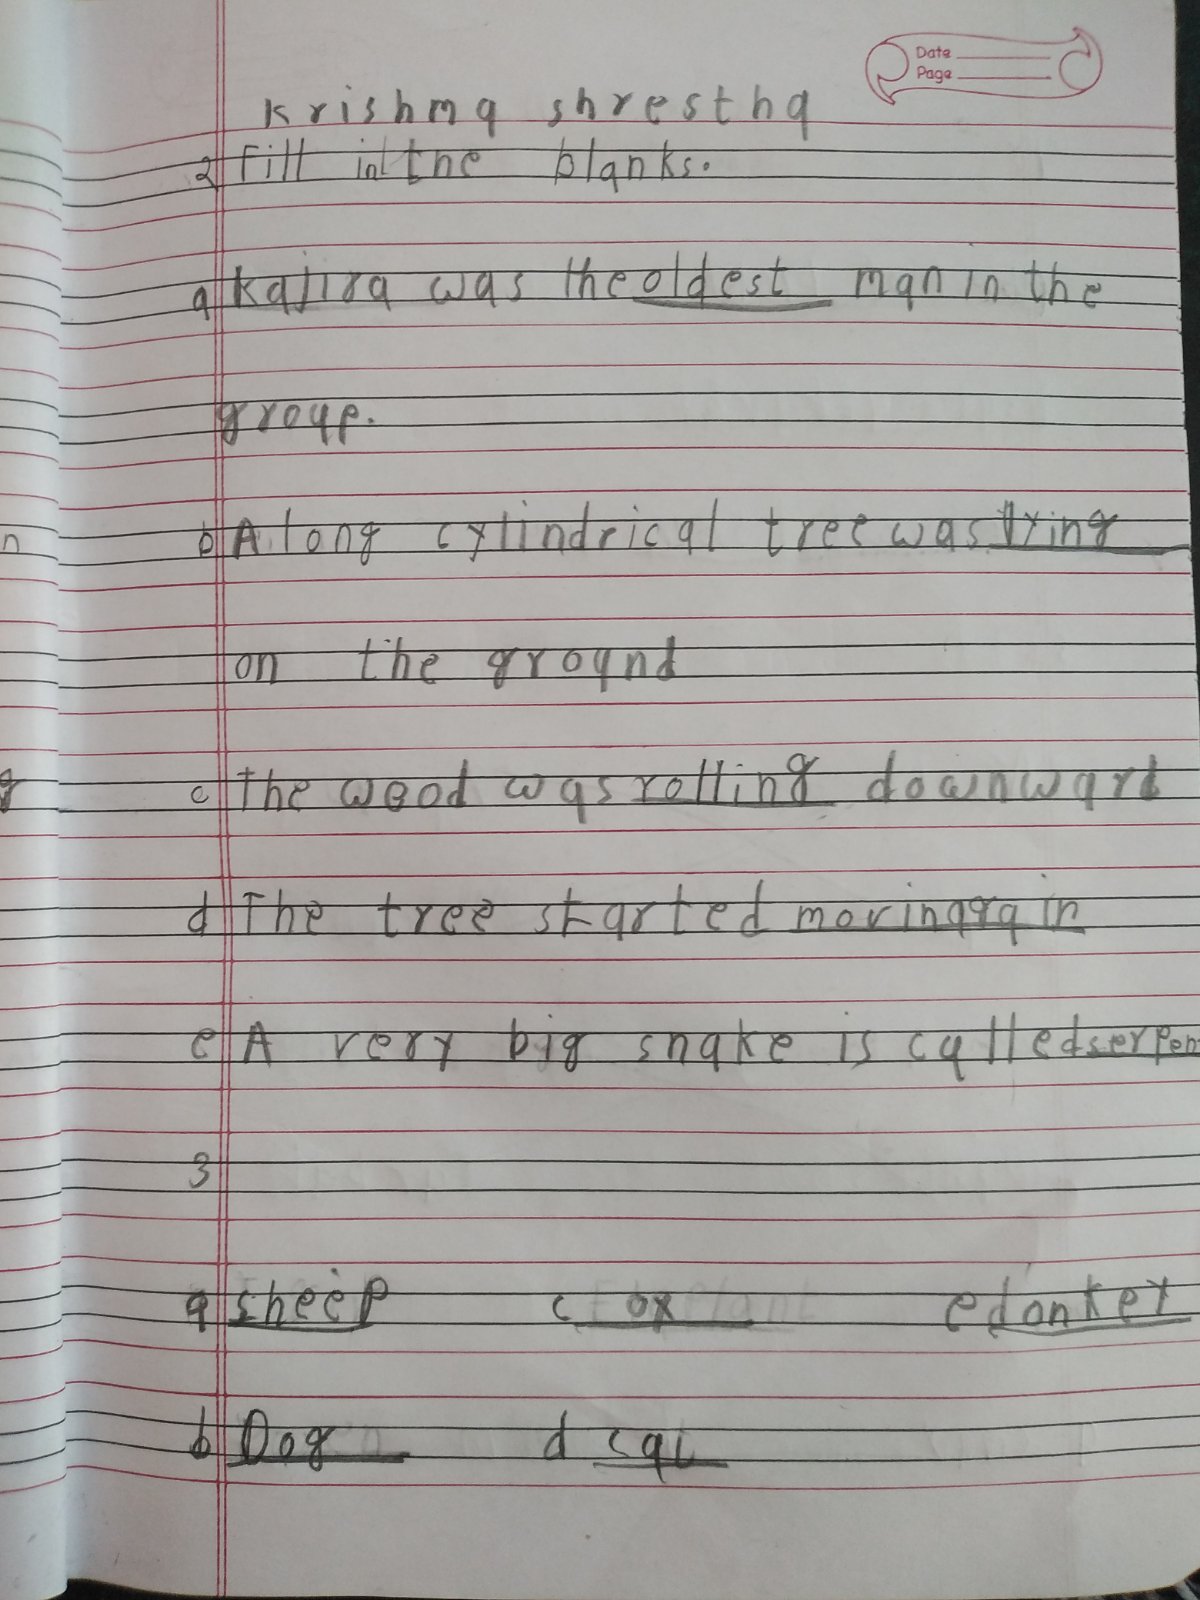 Date
Page
krishma shrestha
2 fill in the blanks.
a kajira was the oldest man in the
group.
b A long cylindrical tree was lying
on the ground
c The wood was rolling downward
d The tree started moving again
e A very big snake is called serpent
3
a sheep c ox e donkey
b Dog d cat
n
g